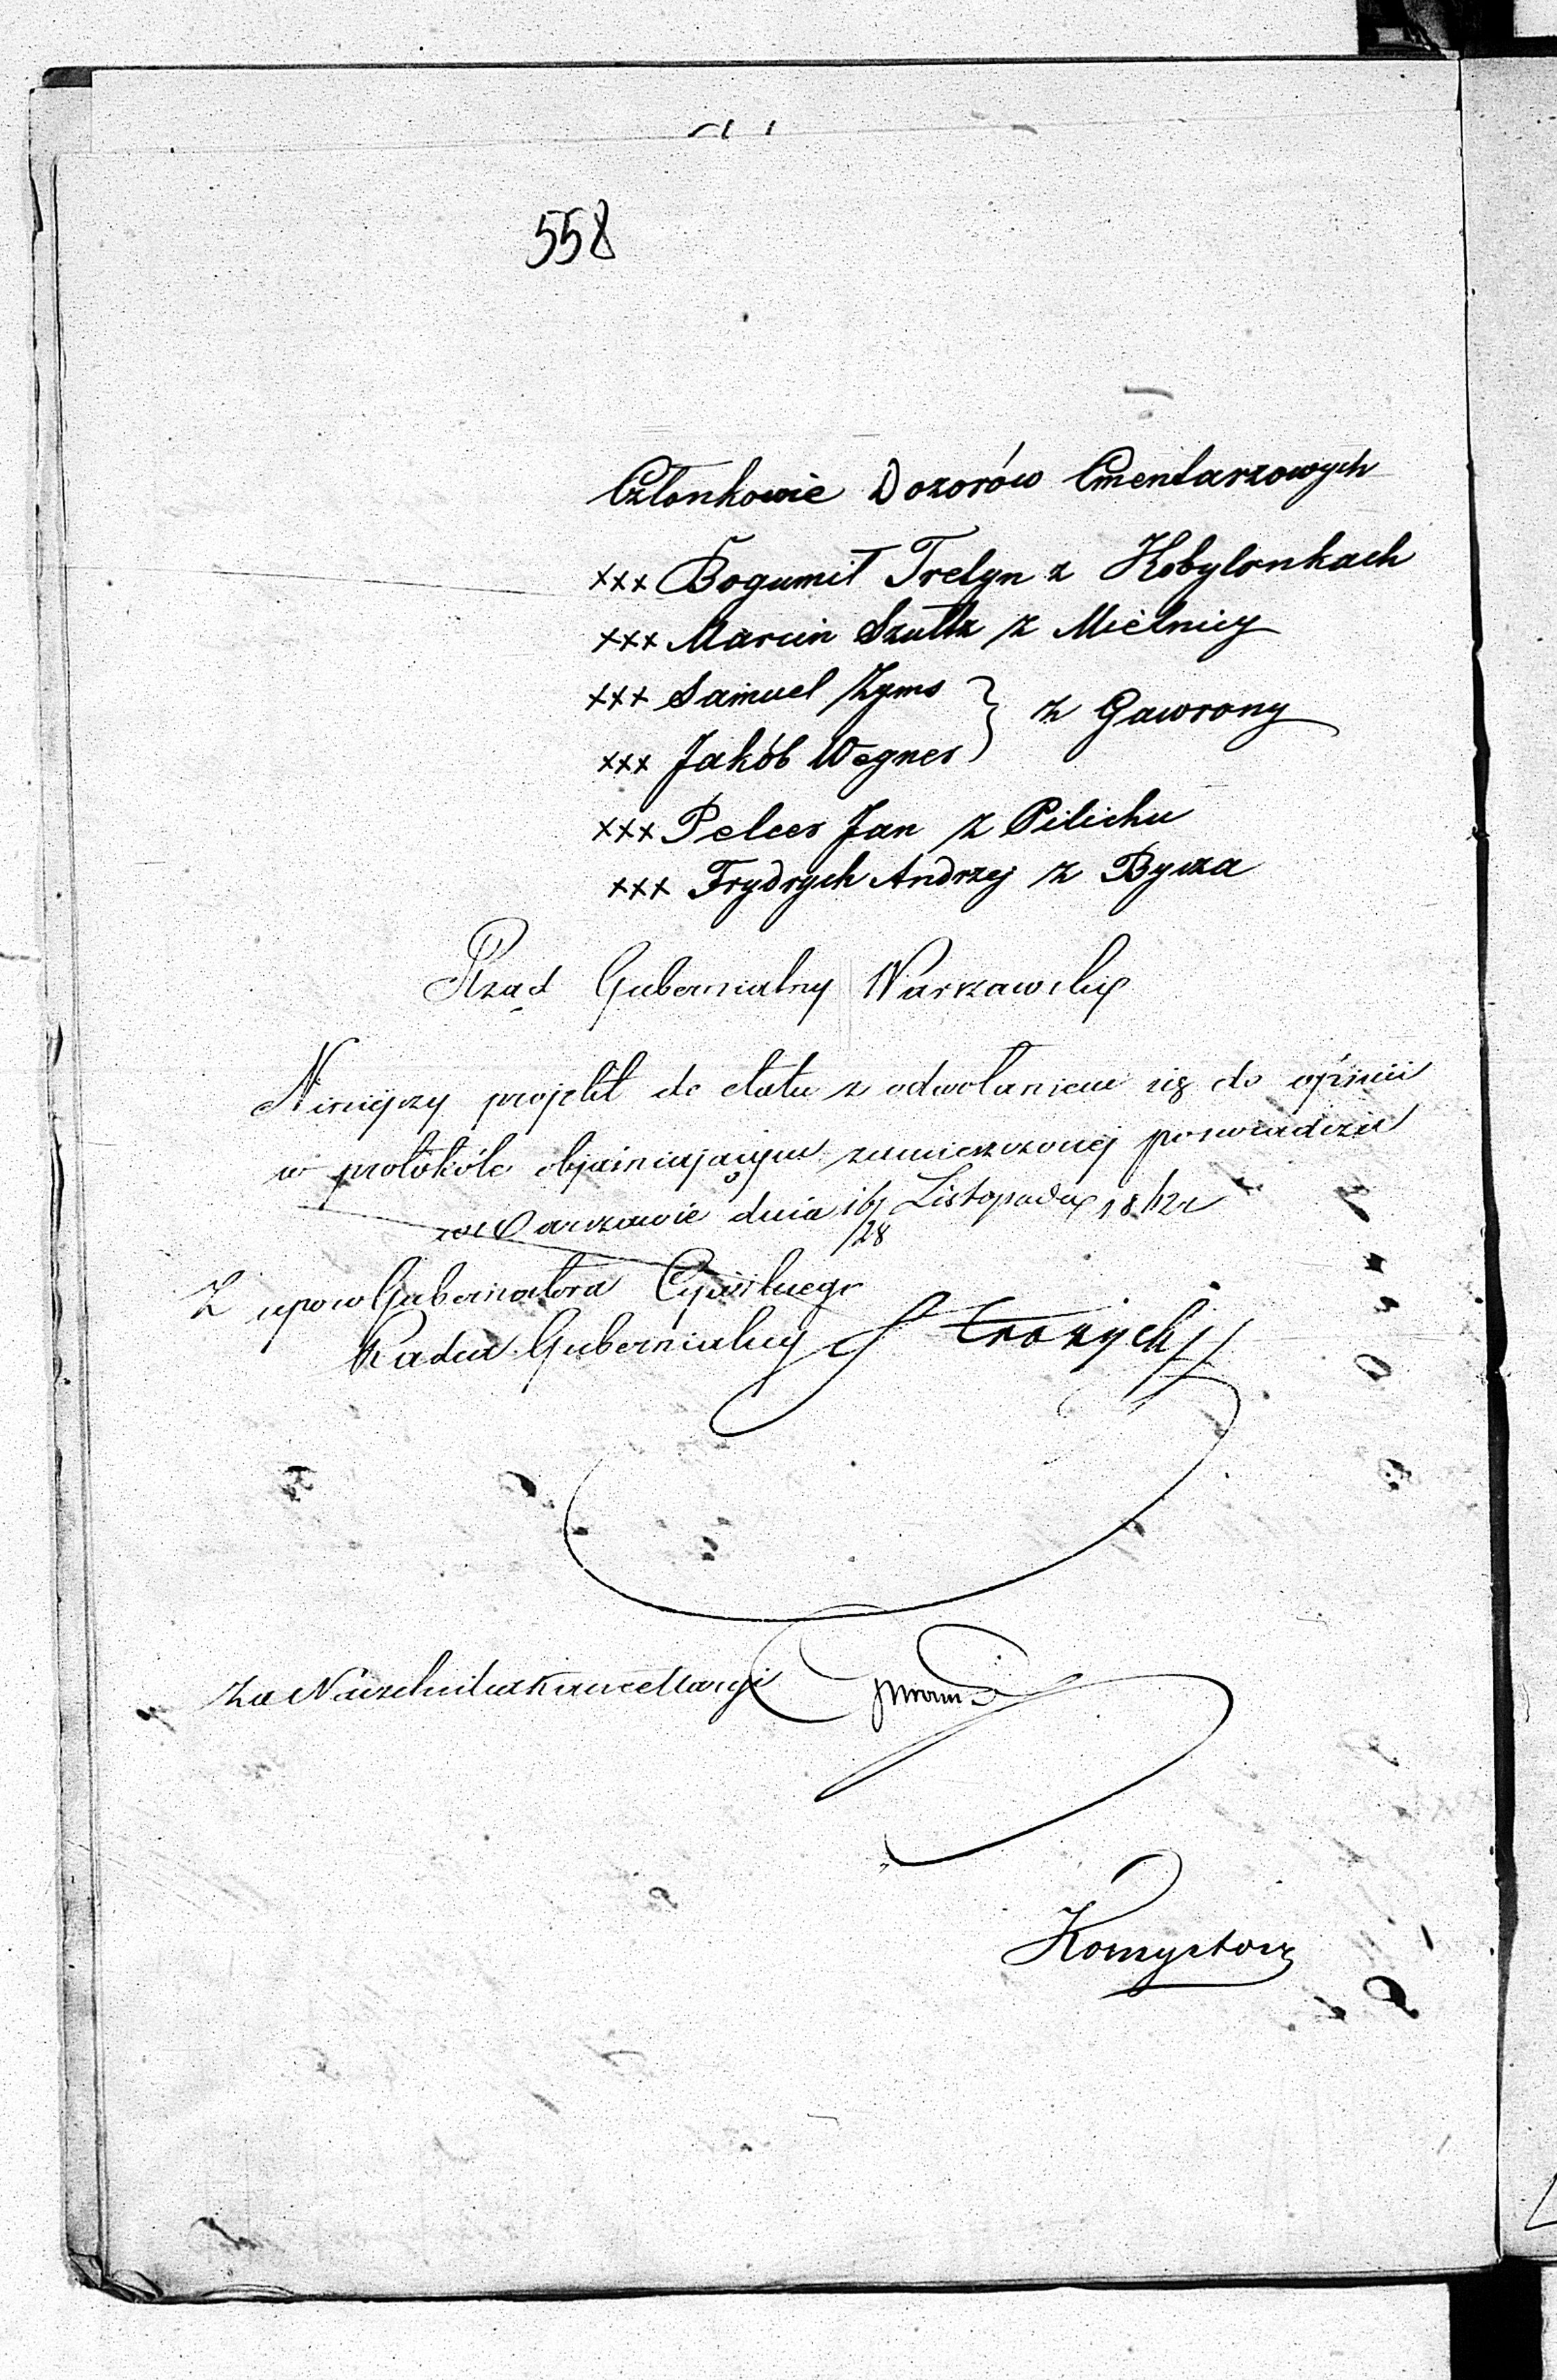 558
Członkowie Dozorów Cmentarzowych
xxx Bogumił Trelyn z Kobylonkach
xxx Marcin Szultz z Mielnicy
xxx Samuel Zyms
xxx Jakób Wegner } z Gawrony
xxx Pelcer Jan z Pilichu
xxx Frydrych Andrzej z Bycza
Rząd Gubernialny Warszawski
Niniejszy projekt do etatu z odwołaniem się do opinii
w protokóle objaśniającym zamieszczonej poswiadcza
w Warszawie dnia 16/28 Listopada
Z upow Gubernatora Cywilnego
Radca Gubernialny
Za Naczelnika Kancellaryi